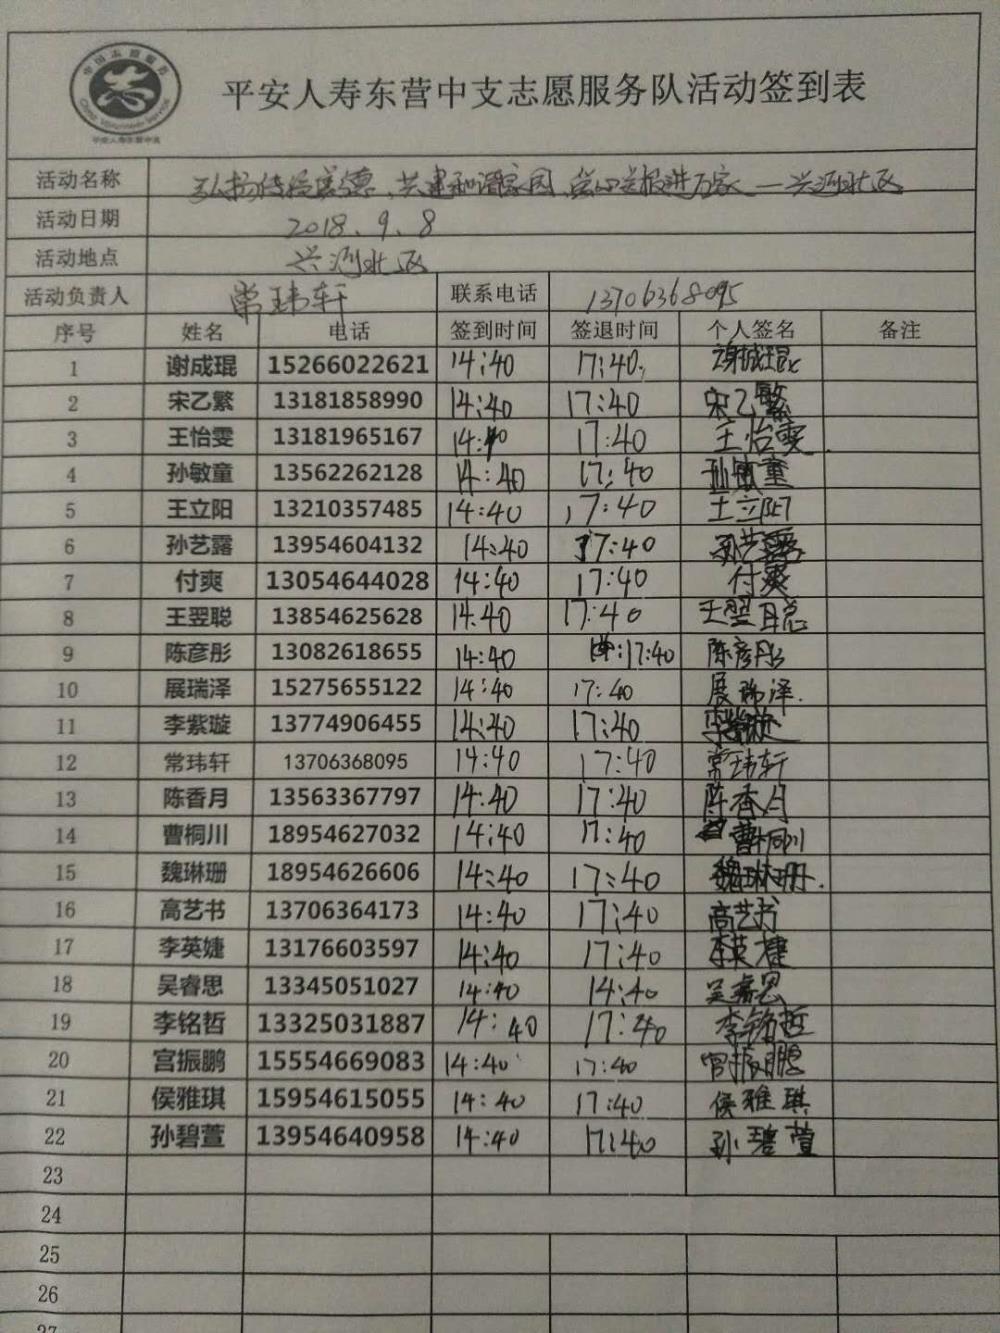 中国志愿服务
CHINA VOLUNTEER SERVICE
平安人寿东营中支
平安人寿东营中支志愿服务队活动签到表
活动名称 弘扬传统美德、共建和谐家园,进万家—兴河北区
活动日期 2018.9.8
活动地点 兴河北区
活动负责人 常玮轩 联系电话 13706368095
序号 姓名 电话 签到时间 签退时间 个人签名 备注
1 谢成琨 15266022621 14:40 17:40
2 宋乙繁 13181858990 14:40 17:40 宋乙繁
3 王怡雯 13181965167 14:40 17:40 王怡雯
4 孙敏童 13562262128 14:40 17:40 孙敏童
5 王立阳 13210357485 14:40 17:40 王立阳
6 孙艺露 13954604132 14:40 17:40 孙艺露
7 付爽 13054644028 14:40 17:40 付爽
8 王翌聪 13854625628 14:40 17:40 王翌聪
9 陈彦彤 13082618655 14:40 17:40 陈彦彤
10 展瑞泽 15275655122 14:40 17:40 展瑞泽
11 李紫璇 13774906455 14:40 17:40 李紫璇
12 常玮轩 13706368095 14:40 17:40 常玮轩
13 陈香月 13563367797 14:40 17:40 陈香月
14 曹桐川 18954627032 14:40 17:40 曹桐川
15 魏琳珊 18954626606 14:40 17:40 魏琳珊
16 高艺书 13706364173 14:40 17:40 高艺书
17 李英婕 13176603597 14:40 17:40 李英婕
18 吴睿思 13345051027 14:40 14:40 吴睿思
19 李铭哲 13325031887 14:40 17:40 李铭哲
20 宫振鹏 15554669083 14:40 17:40 宫振鹏
21 侯雅琪 15954615055 14:40 17:40 侯雅琪
22 孙碧萱 13954640958 14:40 17:40 孙碧萱
23
24
25
26
27